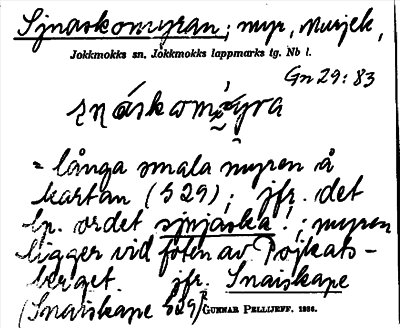 Sjnaskomyran; myr, Murjek,
Jokkmokks sn, Jokkmokks lappmarks tg. Nb l.
Gn 29: 83
snáskomyra
= långa smala myren å
kartan (S 29); jfr. det
lp. ordet sjnjáska!; myren
ligger vid foten av Pojkats-
berget. jfr. Snaiskape
(Snaiskape S29)
GUNNAR PELLIJEFF. 1956.